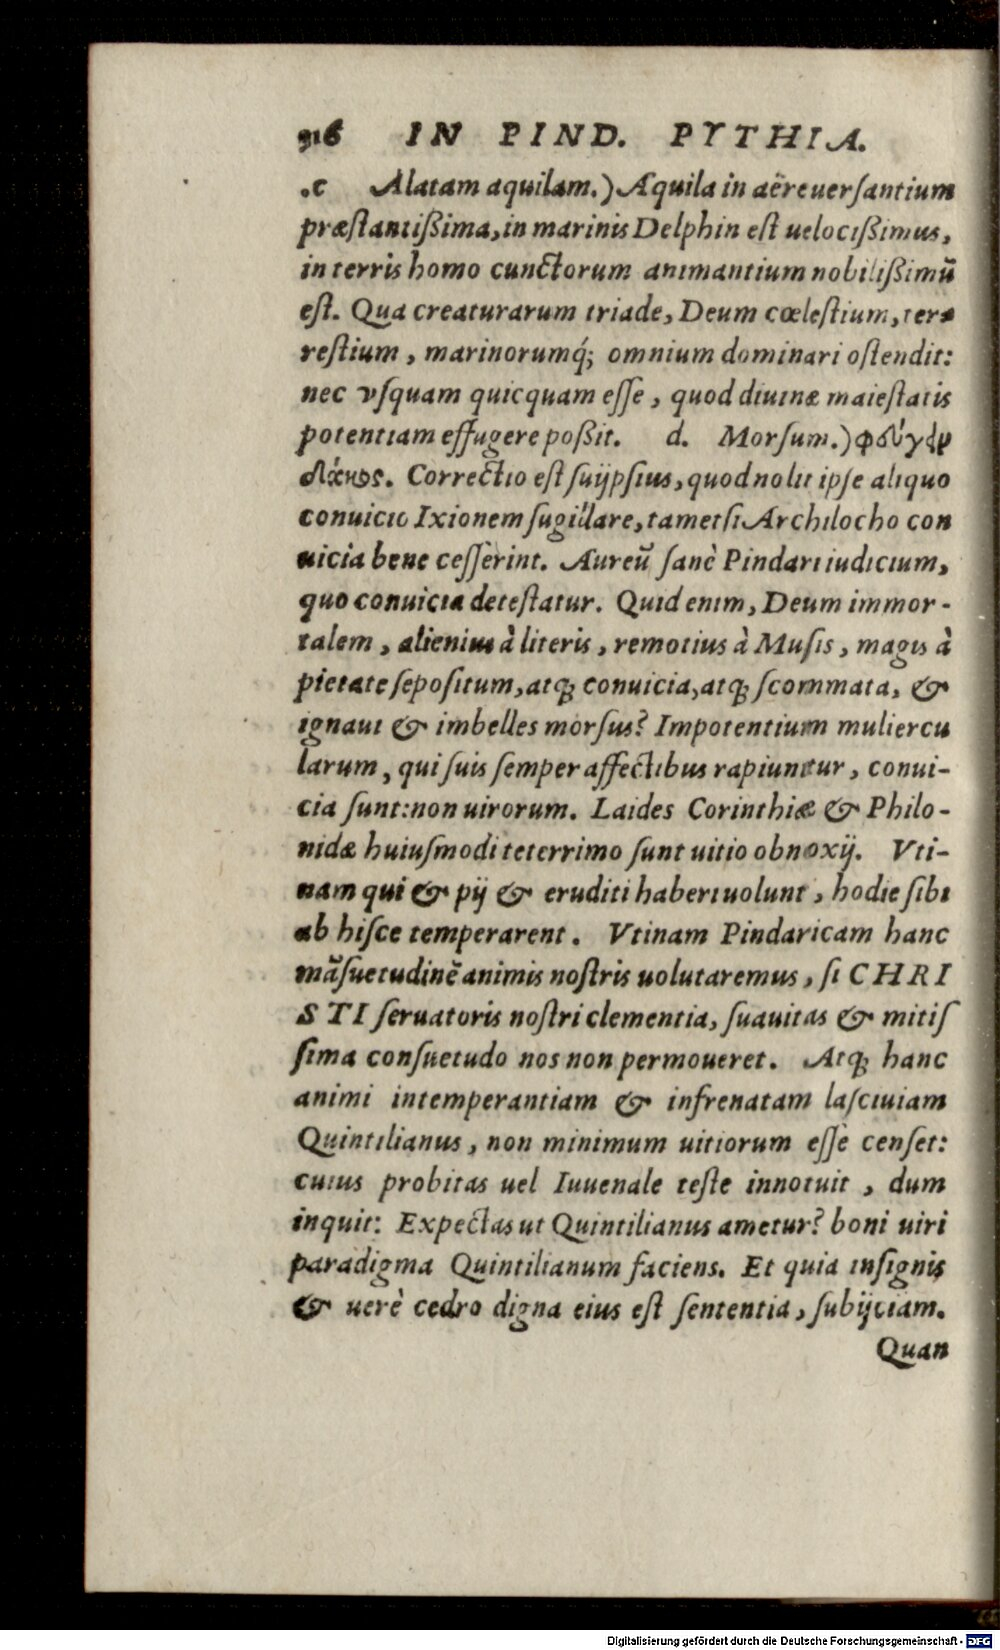 916 IN PIND. PYTHIA.
.c Alatam aquilam.) Aquila in aëre uersantium
præstantißima, in marinis Delphin est uelocißimus,
in terris homo cunctorum animantium nobilißimū
est. Qua creaturarum triade, Deum cœlestium, ter-
restium, marinorumq́; omnium dominari ostendit:
nec vsquam quicquam esse, quod diuinæ maiestatis
potentiam effugere poßit. d. Morsum.) φεύγειν
δάκος. Correctio est suijpsius, quod nolit ipse aliquo
conuicio Ixionem sugillare, tametsi Archilocho con
uicia bene cesserint. Aureū sanè Pindari iudicium,
quo conuicia detestatur. Quid enim, Deum immor-
talem, alienius à literis, remotius à Musis, magis à
pietate sepositum, atq; conuicia, atq; scommata, &
ignaui & imbelles morsus? Impotentium muliercu
larum, qui suis semper affectibus rapiuntur, conui-
cia sunt: non uirorum. Laides Corinthiæ & Philo-
nidæ huiusmodi teterrimo sunt uitio obnoxij. Vti-
nam qui & pij & eruditi haberi uolunt, hodie sibi
ab hisce temperarent. Vtinam Pindaricam hanc
māsuetudinē animis nostris uolutaremus, si CHRI
STI seruatoris nostri clementia, suauitas & mitis
sima consuetudo nos non permoueret. Atq; hanc
animi intemperantiam & infrenatam lasciuiam
Quintilianus, non minimum uitiorum esse censet:
cuius probitas uel Iuuenale teste innotuit, dum
inquit: Expectas ut Quintilianus ametur? boni uiri
paradigma Quintilianum faciens. Et quia insignis
& uerè cedro digna eius est sententia, subijciam.
Quan
Digitalisierung gefördert durch die Deutsche Forschungsgemeinschaft - DFG